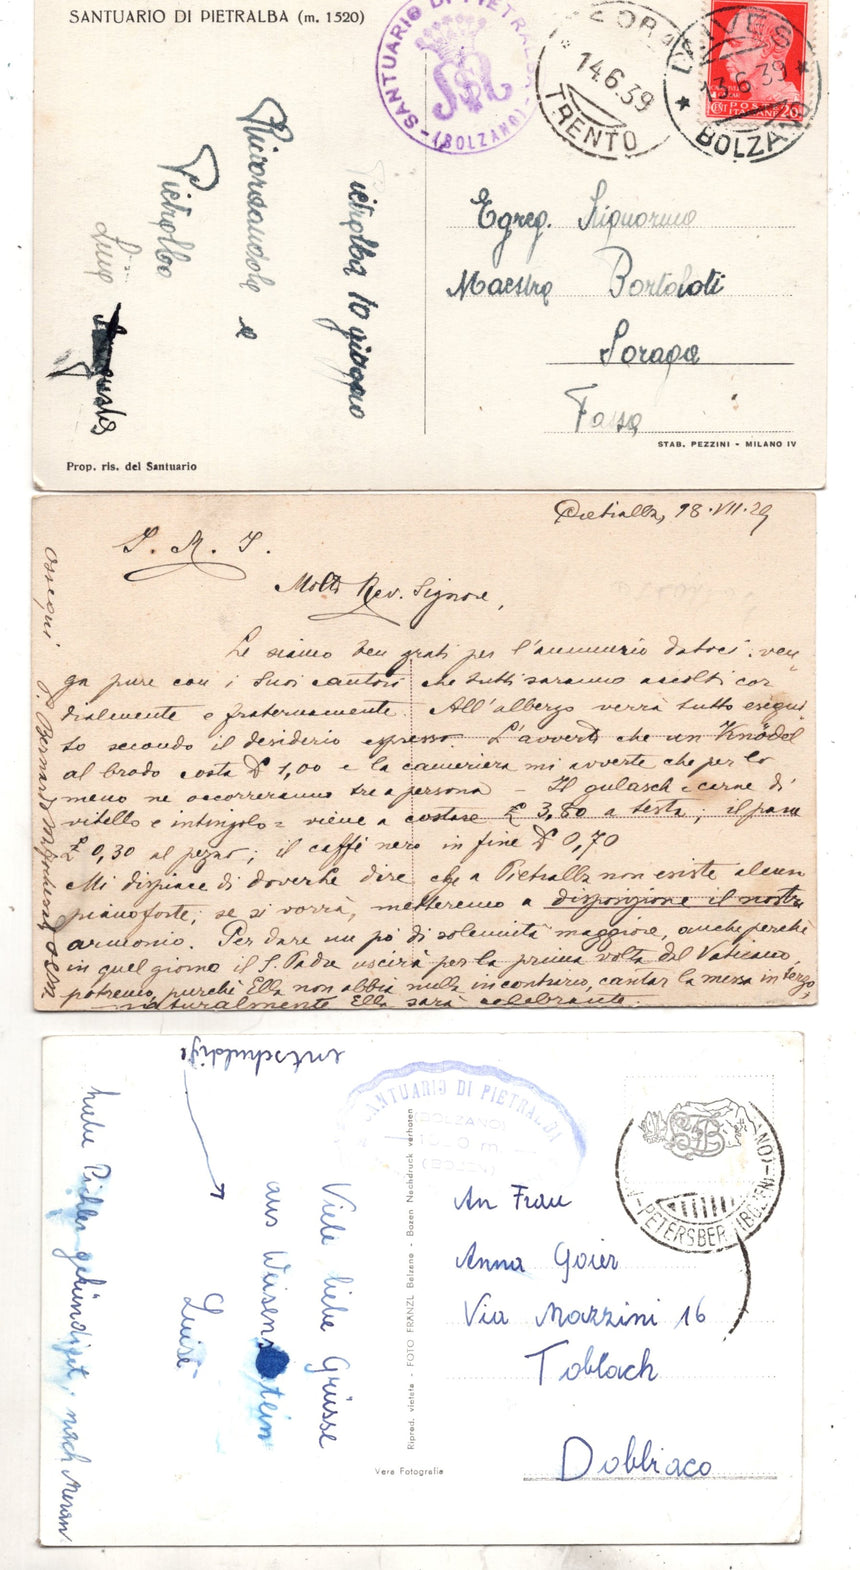 SANTUARIO DI PIETRALBA (m. 1520)
SANTUARIO DI PIETRALBA
(BOLZANO)
14.6.39
TRENTO
LAIVES
13.6.39
BOLZANO
CENT POSTE 20
ITALIANE
Pietralba 10 giugno
Ricordandola e
Pietralba
Egreg. Signorino
Maestro Bortolotti
Soraga
Fassa
STAB. PEZZINI - MILANO IV
Prop. ris. del Santuario
Pietralba, 18.VII.29
J. M. J.
Molto Rev. Signore,
Le siamo ben grati per l'annunzio datoci. ven
ga pure con i Suoi cantori che tutti saranno accolti cor
dialmente e fraternamente. All'albergo verrà tutto esegui
to secondo il desiderio espresso. L'avverto che un Knödel
al brodo costa £ 1,00 e la cameriera mi avverte che per lo
meno ne occorreranno tre a persona - Il gulasch = carne di
vitello e intingolo = viene a costare £ 3,80 a testa; il pane
£ 0,30 al pezzo; il caffè nero in fine £ 0,70
Mi dispiace di doverLe dire che a Pietralba non esiste alcun
pianoforte; se si vorrà, metteremo a disposizione il nostro
armonio. Per dare un pò di solennità maggiore, anche perchè
in quel giorno il S. Padre uscirà per la prima volta dal Vaticano,
potremo, purchè Ella non abbia nulla in contrario, cantar la messa in terzo,
naturalmente Ella sarà celebrante.
Ossequi P. Bernardo OSM
entschuldige
SANTUARIO DI PIETRALBA
(BOLZANO)
1520 m.
(BOZEN)
PETERSBERG (BOZEN)
Viele liebe Grüsse
aus Weisenstein
Luise
habe Pichler gekündigt, nach Meran
Riprod. vietata - FOTO FRANZL Bolzano - Bozen Nachdruck verboten
An Frau
Anna Goier
Via Mazzini 16
Toblach
Dobbiaco
Vera Fotografia